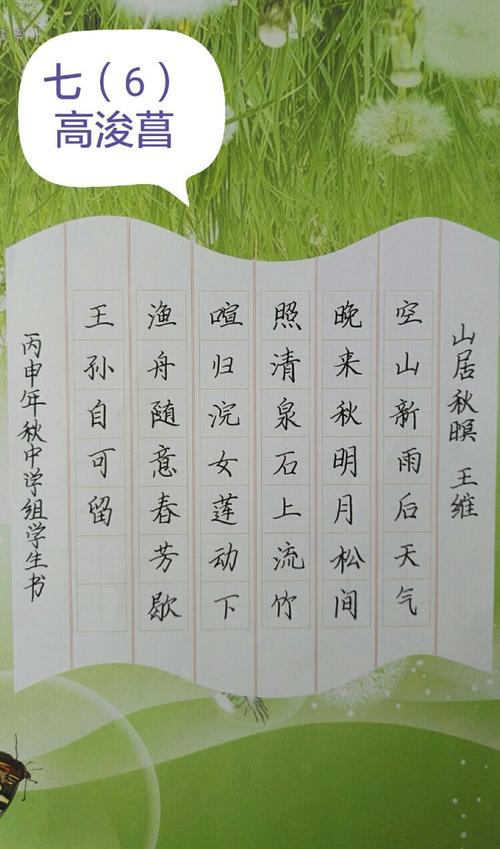 七（6）
高浚菖
山居秋暝 王维
空山新雨后天气
晚来秋明月松间
照清泉石上流竹
喧归浣女莲动下
渔舟随意春芳歇
王孙自可留
丙申年秋中学组学生书